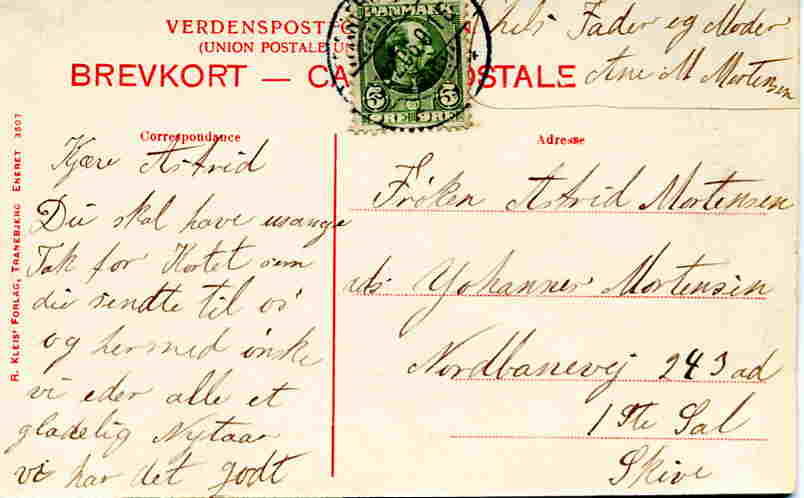 VERDENSPOST
(UNION POSTALE UN
BREVKORT — CA POSTALE
DANMARK
5 5
ØRE ØRE
hils Fader og Moder
Ane M Mortensen
R. KLEIS' FORLAG, TRANEBJERG ENERET 3507
Correspondance
Kjære Astrid
Du skal have mange
Tak for Kortet som
du sendte til os
og hermed ønske
vi eder alle et
gladelig Nytaar
vi har det godt
Adresse
Frøken Astrid Mortensen
ads Yohannes Mortensen
Nordbanevej 243 ad
1 Ste Sal
Skive